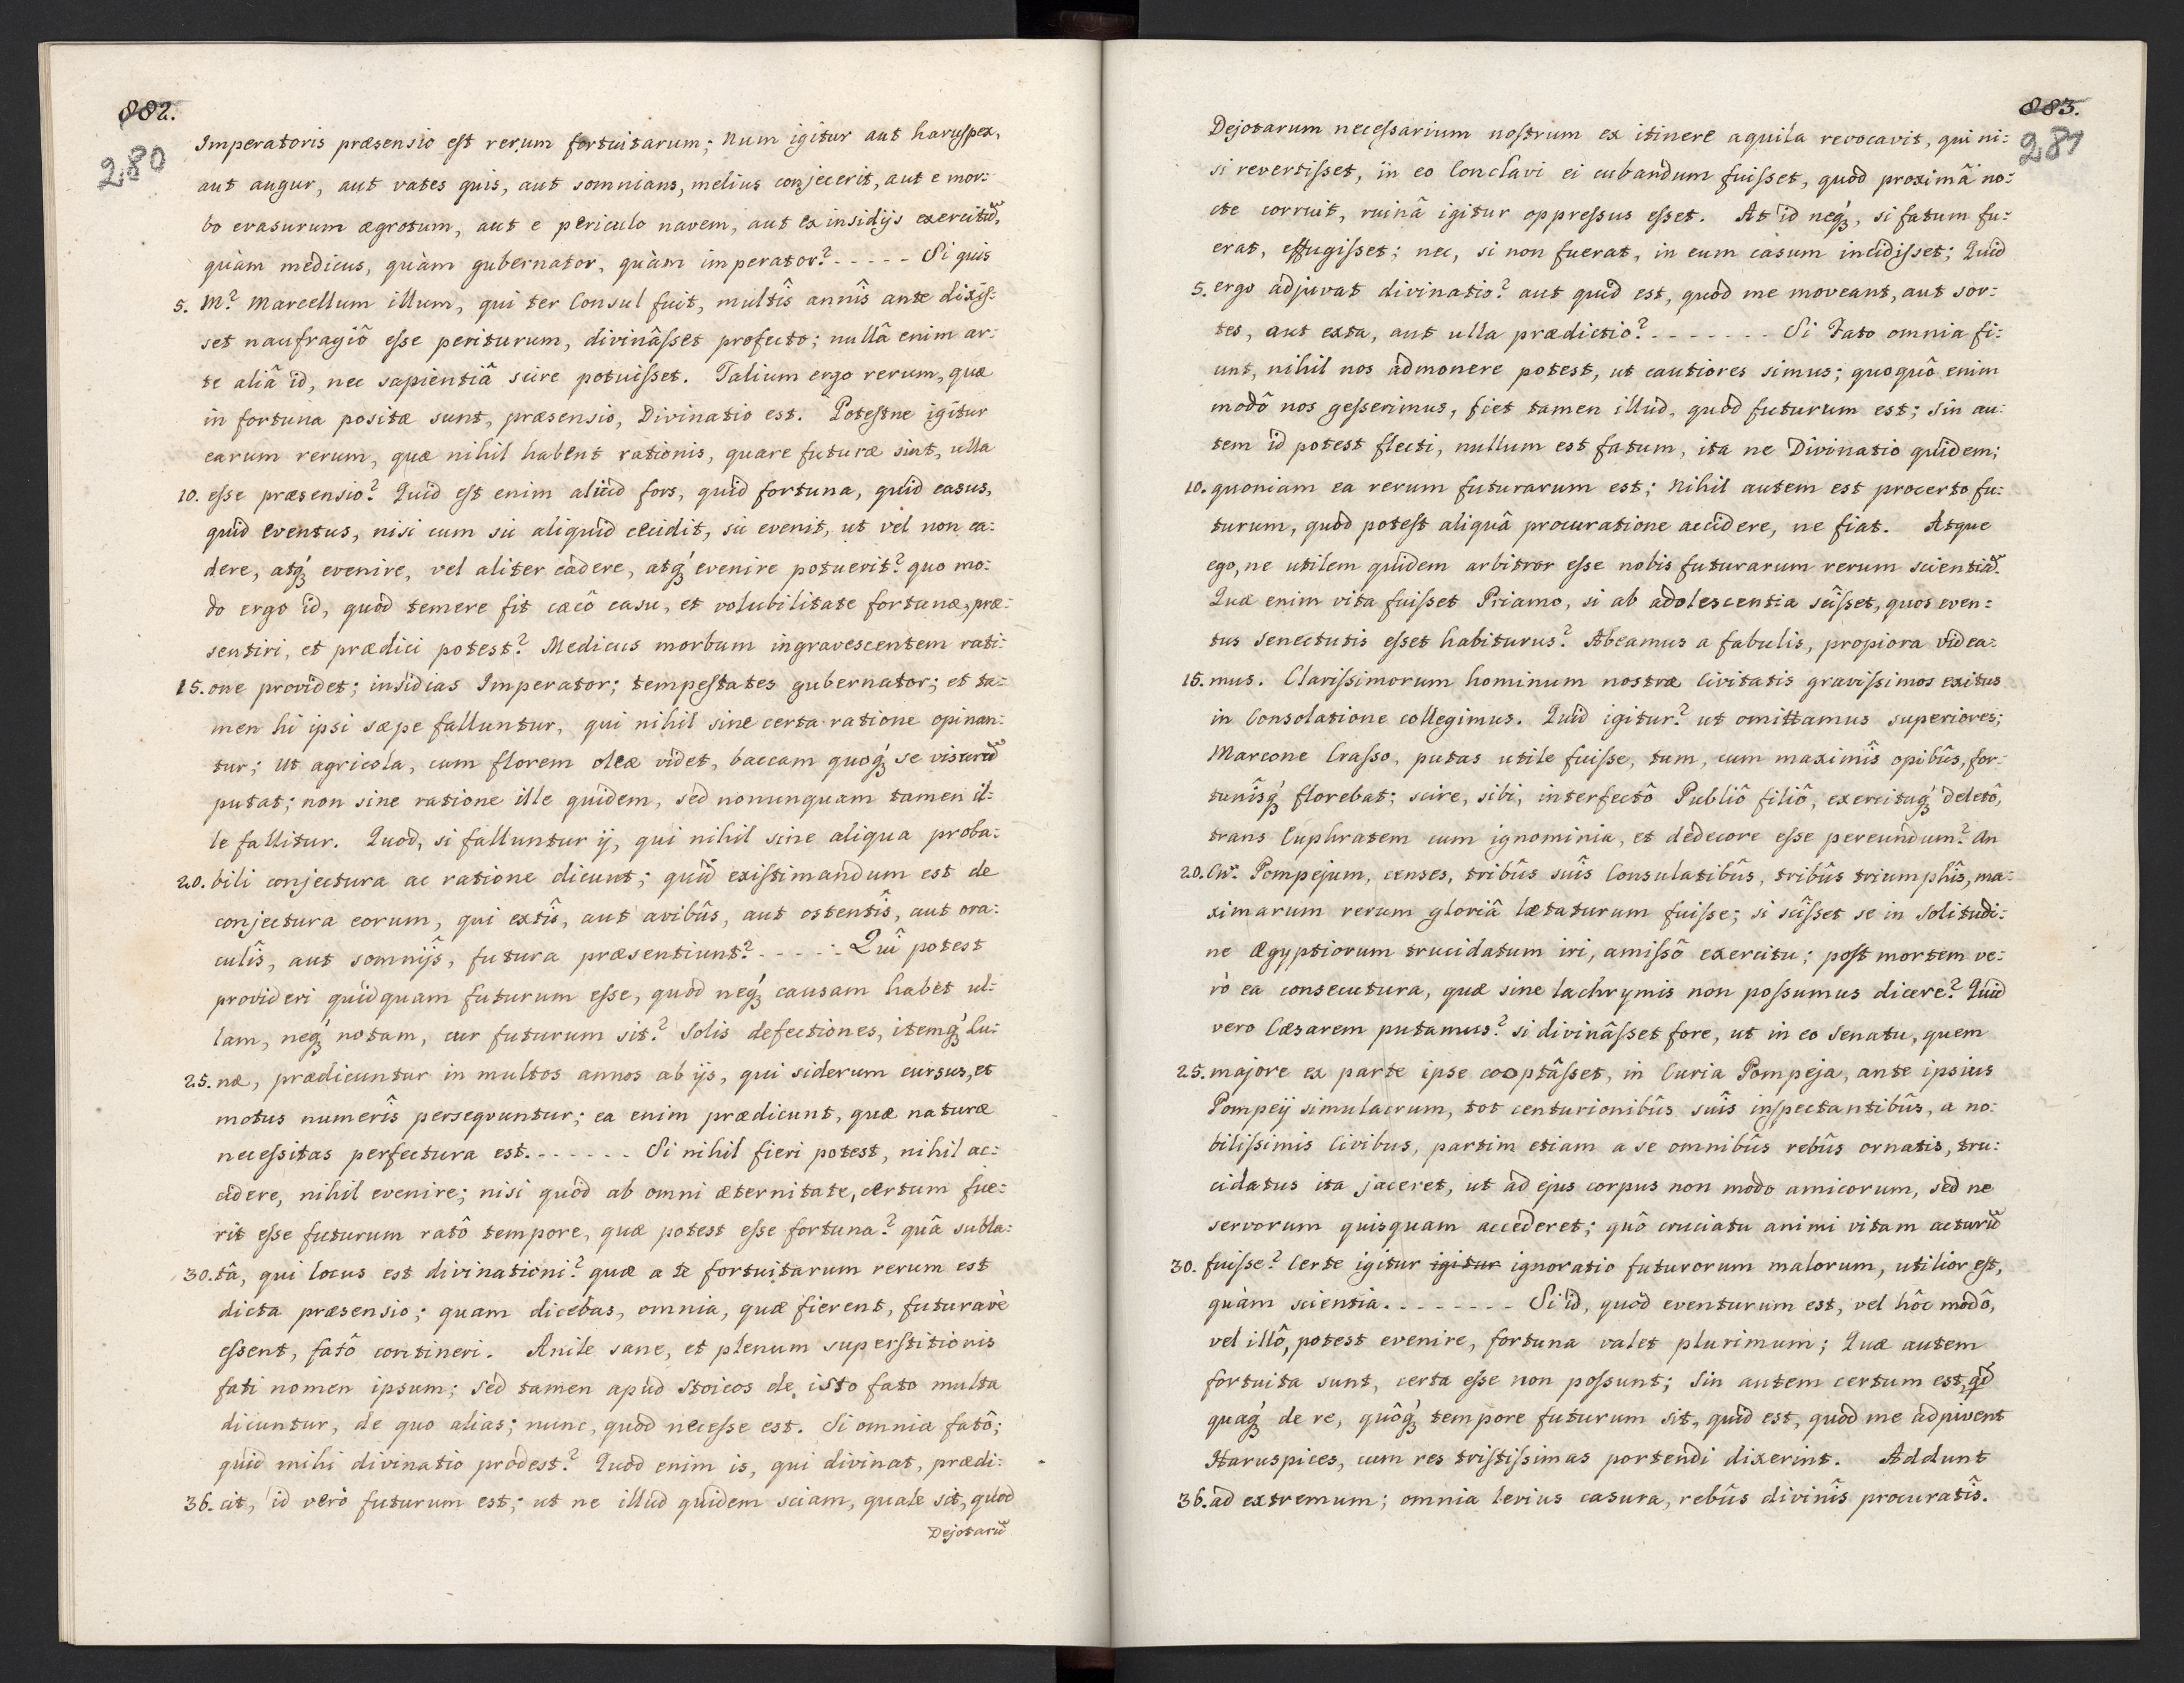 882.
280
Imperatoris præsensio est rerum fortuitarum; Num igitur aut haruspex,
aut augur, aut vates quis, aut somnians, melius conjecerit, aut e mor:
bo evasurum ægrotum, aut e periculo navem, aut ex insidijs exercitũ,
quàm medicus, quàm gubernator, quàm imperator? - - - - - Si quis
5. M? Marcellum illum, qui ter Consul fuit, multîs annîs ante dixis:
set naufragiô esse periturum, divinâsset profecto; nullâ enim ar:
te aliâ id, nec sapientiâ scire potuisset. Talium ergo rerum, quæ
in fortuna positæ sunt, præsensio, Divinatio est. Potestne igitur
earum rerum, quæ nihil habent rationis, quare futuræ sint, ulla
10. esse præsensio? Quid est enim aliud fors, quid fortuna, quid casus,
quid eventus, nisi cum sic aliquid cecidit, sic evenit, ut vel non ca:
dere, atq́ʒ evenire, vel aliter cadere, atq́ʒ evenire potuerit? quo mo:
do ergo id, quod temere fit cæcô casu, et volubilitate fortunæ, præ:
sentiri, et prædici potest? Medicus morbum ingravescentem rati:
15. one providet; insidias Imperator; tempestates gubernator; et ta:
men hi ipsi sæpe falluntur, qui nihil sine certa ratione opinan:
tur; Ut agricola, cum florem oleæ videt, baccam quoq́ʒ se visurũ
putat; non sine ratione ille quidem, sed nonunquam tamen il:
le fallitur. Quod, si falluntur ij, qui nihil sine aliqua proba:
20. bili conjectura ac ratione dicunt; quid existimandum est de
conjectura eorum, qui extîs, aut avibûs, aut ostentîs, aut ora:
culîs, aut somnijs, futura præsentiunt? - - - - : Quî potest
provideri quidquam futurum esse, quod neq́ʒ causam habet ul:
lam, neq́ʒ notam, cur futurum sit? Solis defectiones, itemq́ʒ Lu:
25. næ, prædicuntur in multos annos ab ijs, qui siderum cursus, et
motus numerîs persequuntur; ea enim prædicunt, quæ naturæ
necessitas perfectura est. - - - - - - Si nihil fieri potest, nihil ac:
cidere, nihil evenire; nisi quod ab omni æternitate, certum fue:
rit esse futurum ratô tempore, quæ potest esse fortuna? quâ subla:
30. tâ, qui locus est divinationi? quæ a te fortuitarum rerum est
dicta præsensio; quam dicebas, omnia, quæ fierent, futuravè
essent, fatô contineri. Anile sane, et plenum superstitionis
fati nomen ipsum; sed tamen apud Stoicos de isto fato multa
dicuntur, de quo alias; nunc, quod necesse est. Si omnia fatô;
quid mihi divinatio prodest? Quod enim is, qui divinat, prædi:
36. cit, id verò futurum est; ut ne illud quidem sciam, quale sit, quod
Dejotarũ
883.
281
Dejotarum necessarium nostrum ex itinere aquila revocavit, qui ni:
si revertisset, in eo Conclavi ei cubandum fuisset, quod proximâ no:
cte corruit, ruinâ igitur oppressus esset. At id neq́ʒ, si fatum fu:
erat, effugisset; nec, si non fuerat, in eum casum incidisset; Quid
5. ergo adjuvat divinatio? aut quid est, quod me moveant, aut sor:
tes, aut exta, aut ulla prædictio? - - - - - - - Si Fato omnia fi:
unt, nihil nos admonere potest, ut cautiores simus; quoquô enim
modô nos gesserimus, fiet tamen illud, quod futurum est; Sin au:
tem id potest flecti, nullum est fatum, ita ne Divinatio quidem;
10. quoniam ea rerum futurarum est; Nihil autem est procerto fu:
turum, quod potest aliquâ procuratione accidere, ne fiat. Atque
ego, ne utilem quidem arbitror esse nobis futurarum rerum scientiã.
Quæ enim vita fuisset Priamo, si ab adolescentia scîsset, quos even:
tus senectutis esset habiturus? Abeamus a fabulis, propiora videa:
15. mus. Clarissimorum hominum nostræ Civitatis gravissimos exitus
in Consolatione collegimus. Quid igitur? ut omittamus superiores;
Marcone Crasso, putas utile fuisse, tum, cum maximîs opibûs, for:
tunîsq́ʒ florebat; scire, sibi, interfectô Publiô filiô, exercituq́ʒ deletô,
trans Euphratem cum ignominia, et dedecore esse pereundum? An
20. Cn: Pompejum, censes, tribûs suîs Consulatibûs, tribûs triumphîs, ma:
ximarum rerum gloriâ lætaturum fuisse; si scîsset se in Solitudi:
ne Ægyptiorum trucidatum iri, amissô exercitu; post mortem ve:
rò ea consecutura, quæ sine lachrymis non possumus dicere? Quid
vero Cæsarem putamus? si divinâsset fore, ut in eo Senatu, quem
25. majore ex parte ipse cooptâsset, in Curia Pompeja, ante ipsius
Pompeij simulacrum, tot centurionibûs suîs inspectantibûs, a no:
bilissimis Civibus, partim etiam a se omnibûs rebûs ornatis, tru:
cidatus ita jaceret, ut ad ejus corpus non modo amicorum, sed ne
servorum quisquam accederet; quô cruciatu animi vitam acturũ
30. fuisse? Certe igitur igitur ignoratio futurorum malorum, utilior est,
quàm scientia. - - - - - - - Si id, quod eventurum est, vel hôc modô,
vel illô, potest evenire, fortuna valet plurimum; Quæ autem
fortuita sunt, certa esse non possunt; Sin autem certum est, qd
quaq́ʒ de re, quôq́ʒ tempore futurum sit, quid est, quod me adjuvent
Haruspices, cum res tristissimas portendi dixerint. Addunt
36. ad extremum; omnia levius casura, rebûs divinîs procuratîs.